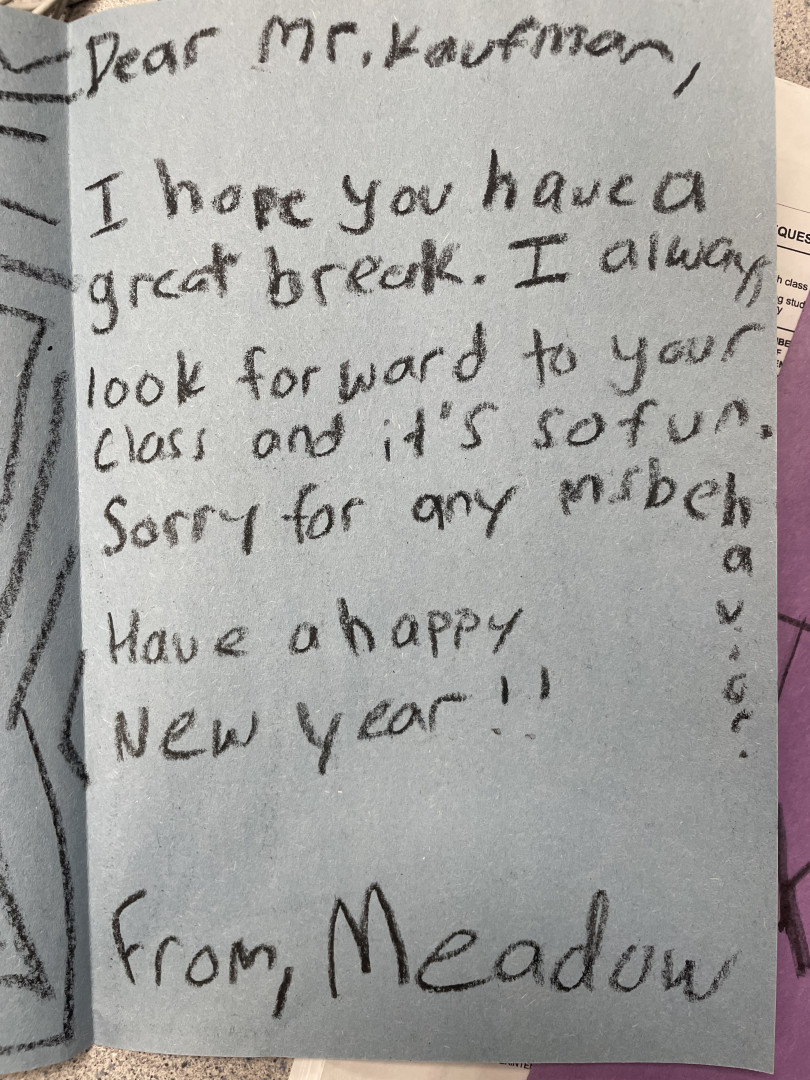 Dear Mr. Kaufman,
I hope you have a
great break. I always
look forward to your
class and it's so fun.
Sorry for any msbehavior.
Have a happy
New year!!
From, Meadow
QUES
h class
g stud
y